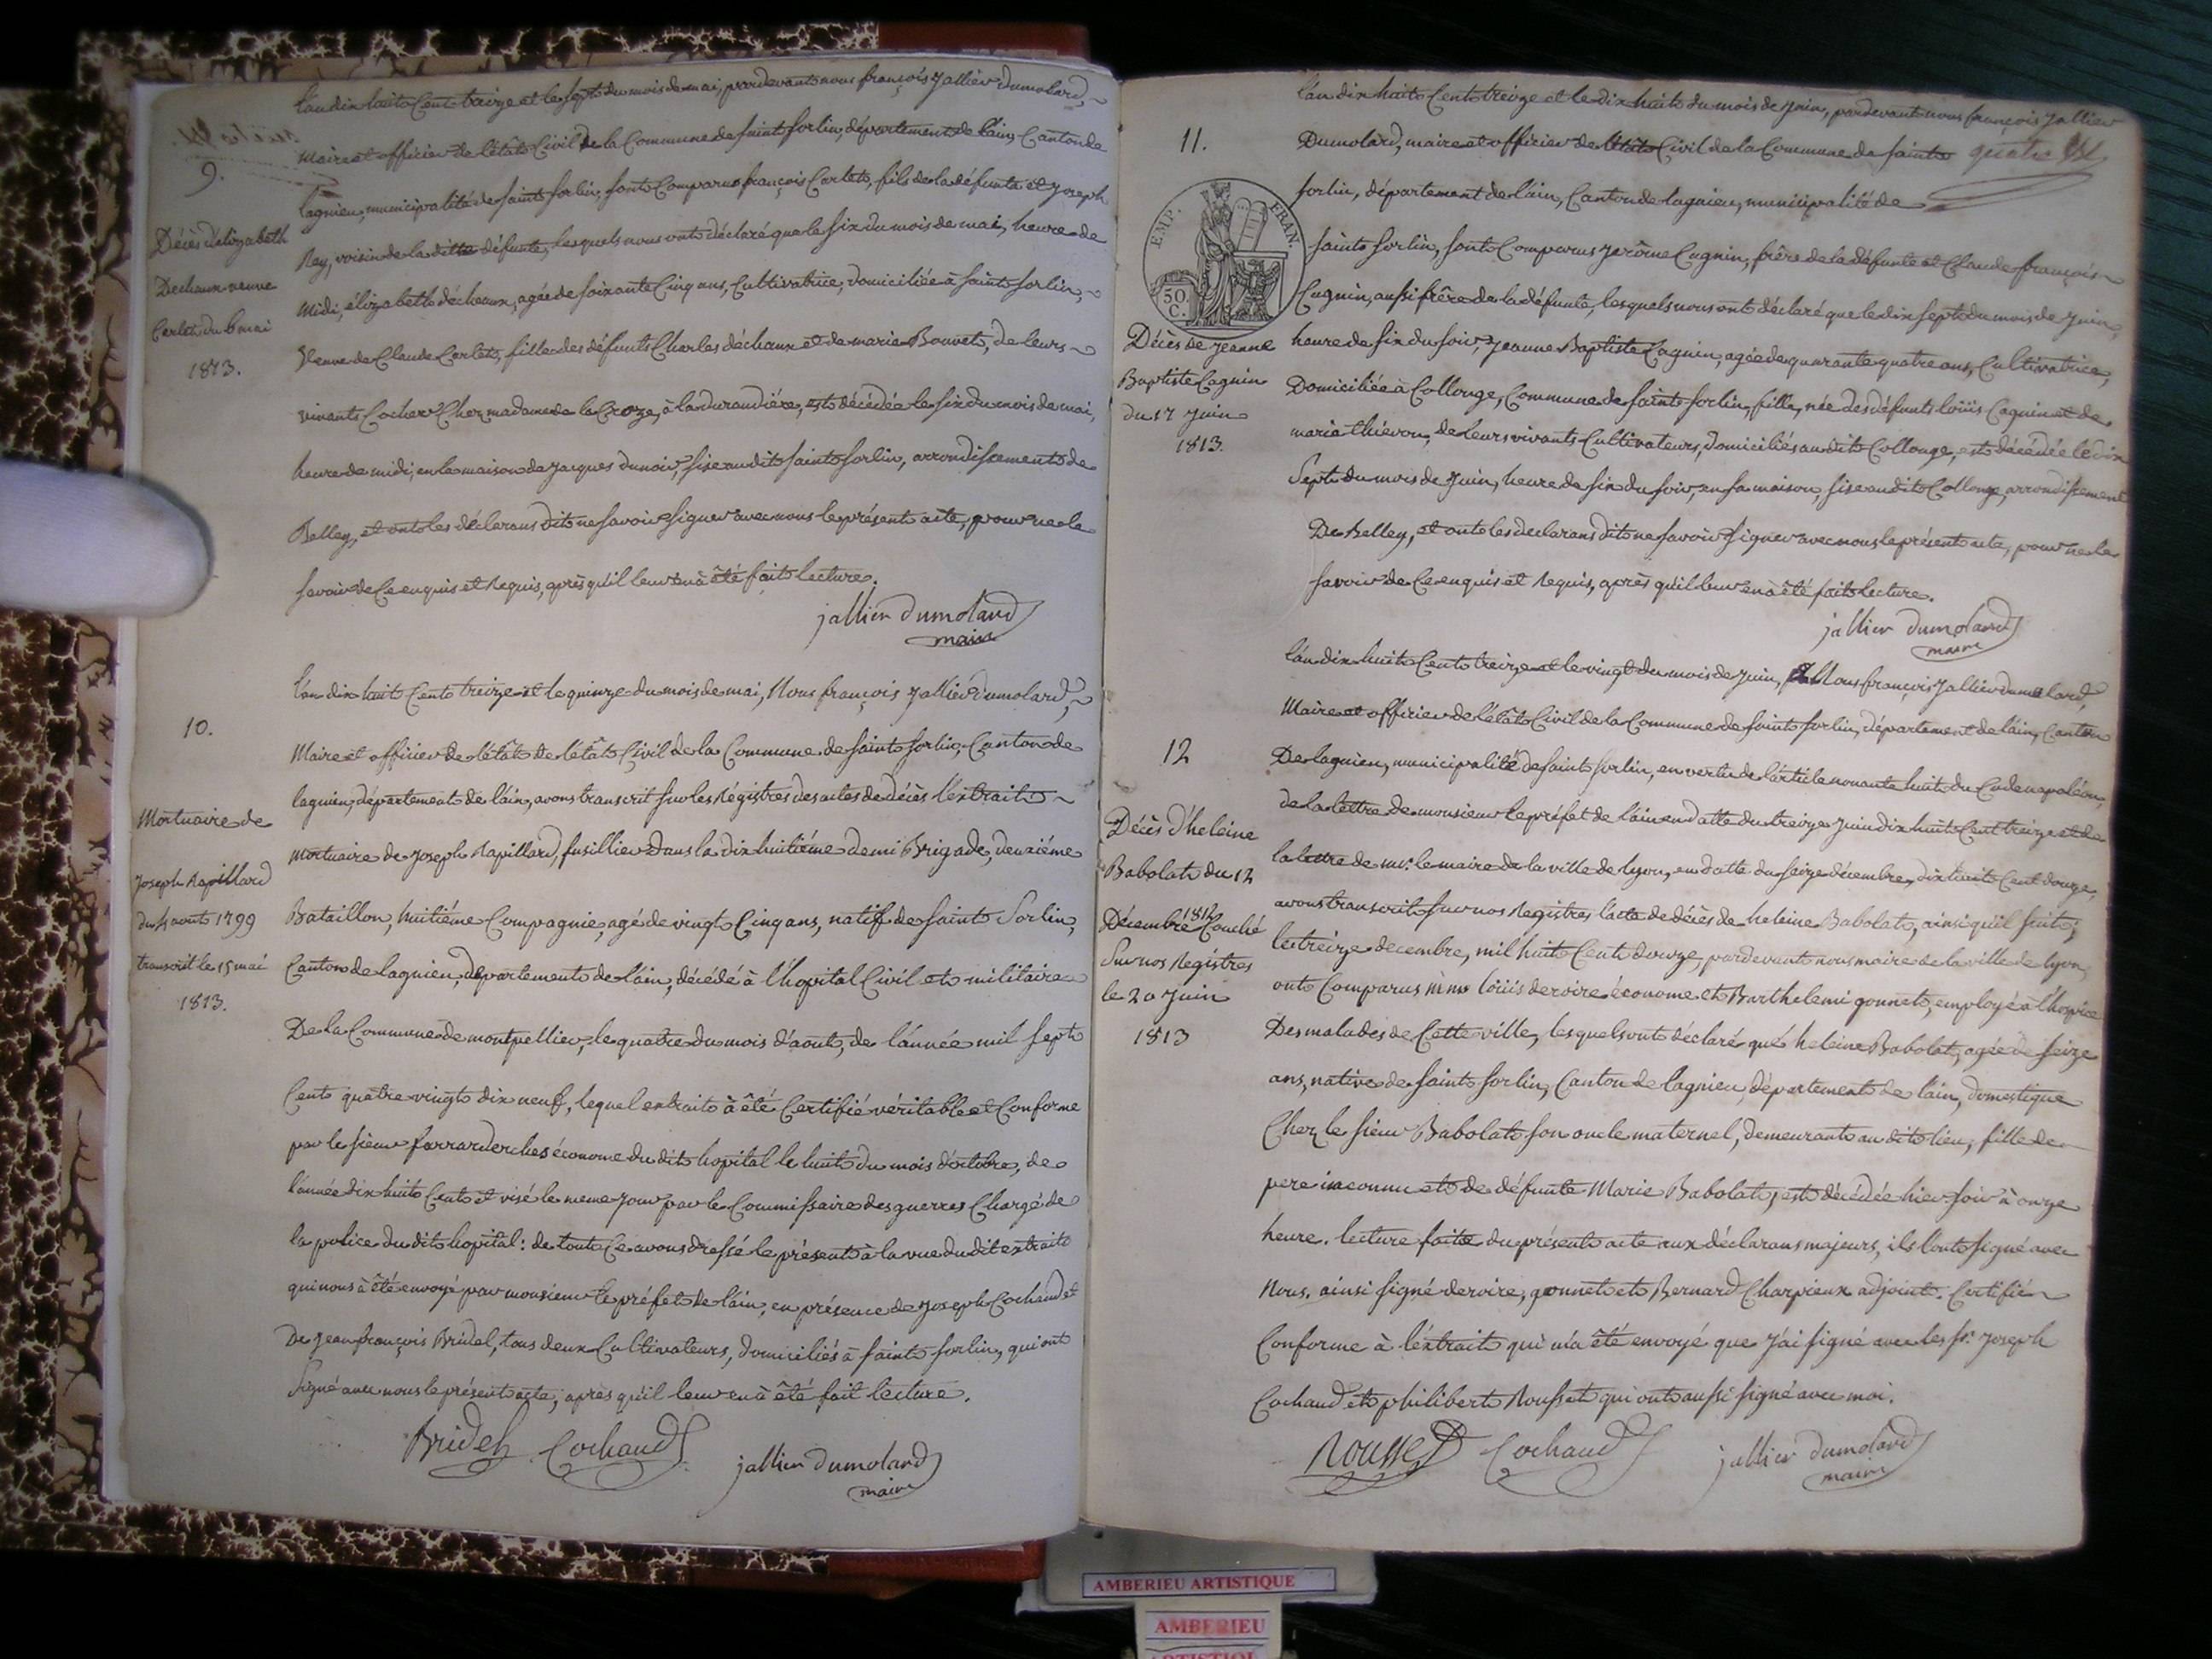 9.
Décès d'élizabeth
Dechaux veuve
Carlet du 6 mai
1813.
L'an dix huit Cent treize et le sept du mois de mai, pardevant nous françois Jallier Dumolard,
Maire et officier de l'êtât Civil de la Commune de saint sorlin, département de l'ain, Canton de
lagnieu, municipalité de saint sorlin, sont Comparus françois Carlet, fils de la défunte et Joseph
Rey, voisin de la ditte défunte, lesquels nous ont déclaré que le six du mois de mai, heure de
Midi, élizabeth déchaux, agée de soixante Cinq ans, Cultivatrice, domiciliée à saint sorlin,
Veuve de Claude Carlet, fille des défunts Charles déchaux et de marie Bouvet, de leurs
vivants Cocher Chez madame de la Croze, à la durandière, est décédée le six du mois de mai,
heure de midi, en la maison de Jacques dunoir, sise au dit saint sorlin, arrondissement de
Belley, et ont les déclarans dit ne savoir signer avec nous le présent acte, pour ne le
savoir de Ce enquis et Requis, après qu'il leur en à êté fait lecture.
jallier dumolard
maire
10.
Mortuaire de
Joseph Rapillard
du 4 aout 1799
transcrit le 15 mai
1813.
L'an dix huit Cent treize et le quinze du mois de mai, Nous françois Jallier dumolard,
Maire et officier de l'êtât de l'êtât Civil de la Commune de saint sorlin, Canton de
lagnieu, département de l'ain, avons transcrit sur les Régistres des actes de décès l'extrait
mortuaire de Joseph Rapillard, fusillier dans la dix huitiéme demi Brigade, deuxiéme
Bataillon, huitiéme Compagnie, agé de vingt Cinq ans, natif de saint Sorlin,
Canton de lagnieu, département de l'ain, décédé à l'hopital Civil et militaire
De la Commune de montpellier, le quatre du mois d'aout, de l'année mil sept
Cent quatre vingt dix neuf, lequel extrait à êté Certifié véritable et Conforme
par le sieur économe du dit hopital le huit du mois d'octobre, de
l'année dix huit Cent et visé le meme jour par le Commissaire des guerres Chargé de
la police du dit hopital: de tout Ce avons dressé le présent à la vue du dit extrait
qui nous à êté envoyé par monsieur le préfet de l'ain, en présence de Joseph Cochaud et
De Jean françois Bridel, tous deux Cultivateurs, domiciliés à saint sorlin, qui ont
Signé avec nous le présent acte, après qu'il leur en à êté fait lecture.
Bridel Cochaud
jallier dumolard
maire
11.
quatre
EMP. FRAN.
50. C.
Décès de Jeanne
Baptiste Cagnin
du 17 Juin
1813.
L'an dix huit Cent treize et le dix huit du mois de Juin, pardevant nous françois Jallier
Dumolard, maire et officier de l'êtât Civil de la Commune de saint
sorlin, département de l'ain, Canton de lagnieu, municipalité de
saint sorlin, sont Comparus Jerôme Cagnin, frêre de la défunte et Claude françois
Cagnin, aussi frêre de la défunte, lesquels nous ont déclaré que le dix sept du mois de Juin,
heure de six du soir, Jeanne Baptiste Cagnin, agée de quarante quatre ans, Cultivatrice,
Domiciliée à Collonge, Commune de saint sorlin, fille, née des défunts loüis Cagnin et de
marie thiévon, de leurs vivants Cultivateurs, domiciliés au dit Collonge, est décédée le dix
Sept du mois de Juin, heure de six du soir, en sa maison sise au dit Collonge, arrondissement
De Belley, et ont les declarans dit ne savoir signer avec nous le présent acte, pour ne le
savoir de Ce enquis et Requis, après qu'il leur en à êté fait lecture.
jallier dumolard
maire
12
Décès d'heleine
Babolat du 12
Décembre 1812 Couché
Sur nos Régistres
le 20 Juin
1813
L'an dix huit Cent treize et le vingt du mois de Juin, Nous françois Jallier dumolard,
Maire et officier de l'êtât Civil de la Commune de saint sorlin, département de l'ain, Canton
De lagnieu, municipalité de saint sorlin, en vertu de l'article nonante huit du Code napoléon,
de la lettre de monsieur le préfet de l'ain en datte du treize Juin dix huit Cent treize et de
la lettre de mr. le maire de la ville de lyon, en datte du seize décembre, dix huit Cent douze,
avons transcrit sur nos Registres l'acte de décès de heleine Babolat, ainsi qu'il suit;
le treize decembre, mil huit Cent douze, pardevant nous maire de la ville de lyon,
ont Comparus mrs loüis deroire économe et Barthelemi gonnet, employé à l'hospice
Des malades de Cette ville, lesquels ont déclaré que heleine Babolat, agée de seize
ans, native de saint sorlin, Canton de lagnieu, département de l'ain, domestique
Chez le sieur Babolat son oncle maternel, demeurant au dit lieu, fille de
pere inconnu et de défunte Marie Babolat, est décédée hier soir à onze
heure. lecture faite du présent acte aux déclarans majeurs, ils l'ont signé avec
Nous. ainsi signé deroire, gonnet et Bernard Charpieux adjoint. Certifié
Conforme à l'extrait qui m'a êté envoyé que j'ai signé avec les srs. Joseph
Cochaud et philibert Rousset qui ont aussi signé avec moi.
Rousset Cochaud
jallier dumolard
maire
AMBERIEU ARTISTIQUE
AMBERIEU
ARTISTIQUE